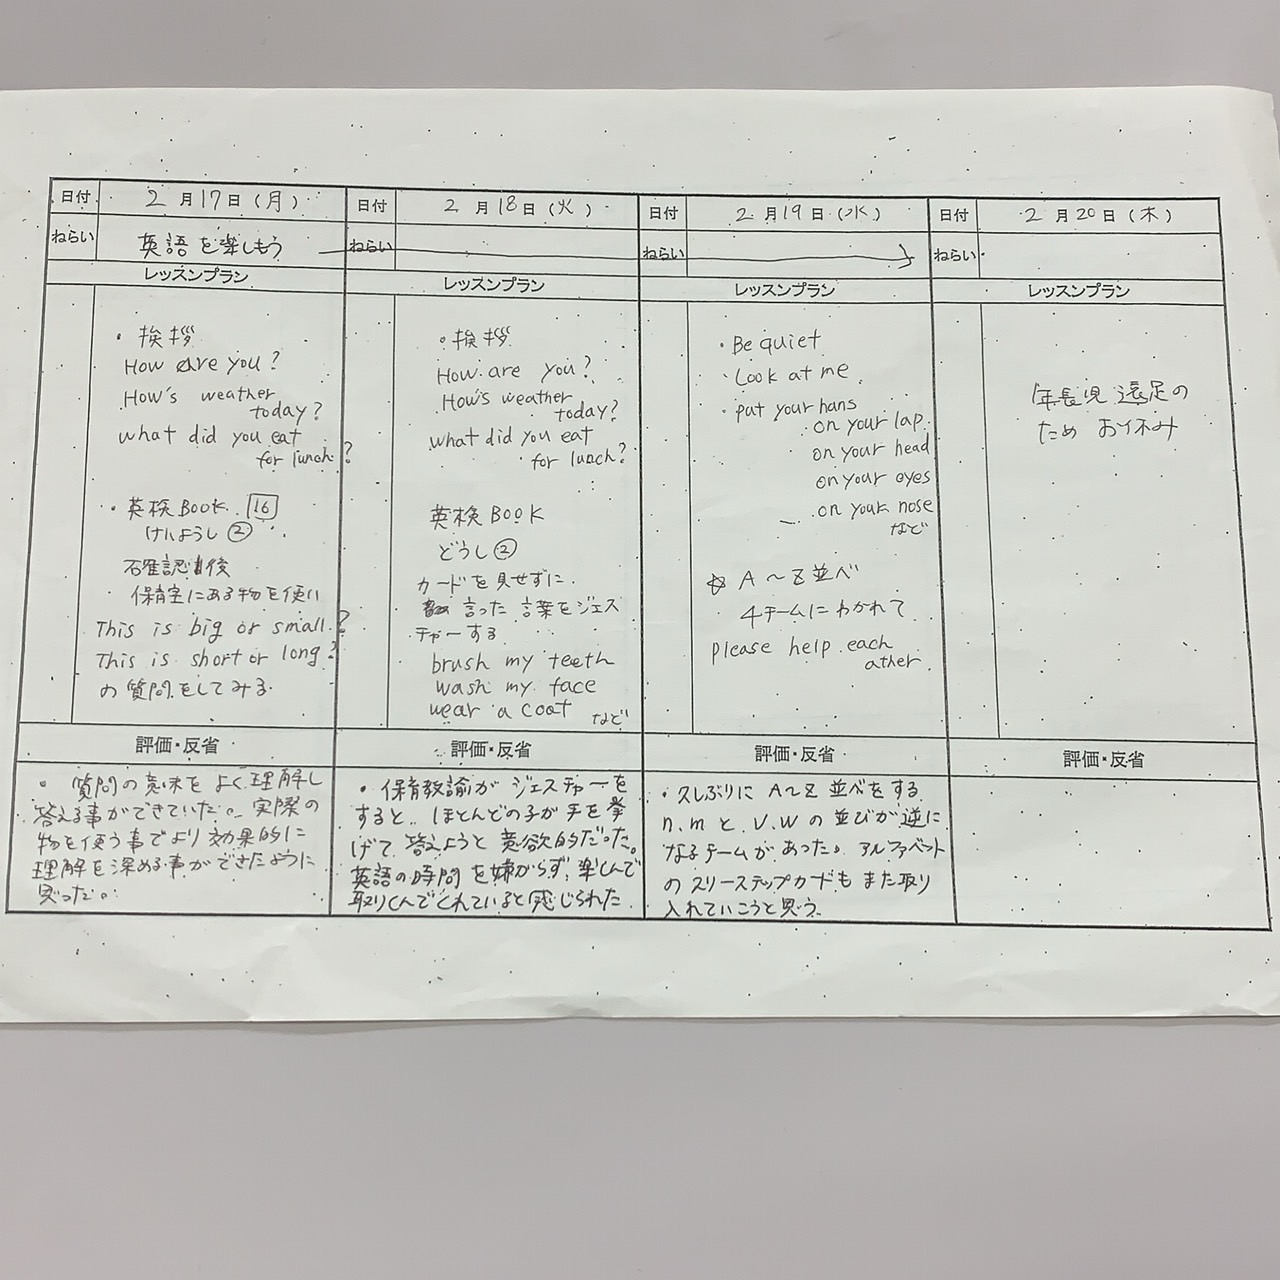 日付 2月17日(月)
ねらい 英語を楽しもう
レッスンプラン
・挨拶
How are you?
How's weather
today?
what did you eat
for lunch?
・英検BOOK 16
けいようし②
確認後
保育室にある物を使い
This is big or small?
This is short or long?
の質問をしてみる
評価・反省
・質問の意味をよく理解し
答える事ができていた。実際の
物を使う事でより効果的に
理解を深める事ができたように
思った。
日付 2月18日(火)
ねらい
レッスンプラン
○挨拶
How are you?
How's weather
today?
what did you eat
for lunch?
英検BOOK
どうし②
カードを見せずに
言った言葉をジェス
チャーする
brush my teeth
wash my face
wear a coat
など
評価・反省
・保育教諭がジェスチャーを
すると、ほとんどの子が手を挙
げて答えようと意欲的だった。
英語の時間を嫌がらず、楽しんで
取りくんでくれていると感じられた。
日付 2月19日(水)
ねらい
レッスンプラン
・Be quiet
・Look at me
・put your hans
on your lap
on your head
on your eyes
on your nose
など
☆ A～Z並べ
4チームにわかれて
please help each
ather.
評価・反省
・久しぶりにA～Z並べをする。
n.mと、V.Wの並びが逆に
なるチームがあった。アルファベット
のスリーステップカードもまた取り
入れていこうと思う。
日付 2月20日(木)
ねらい
レッスンプラン
年長児遠足の
ためお休み
評価・反省